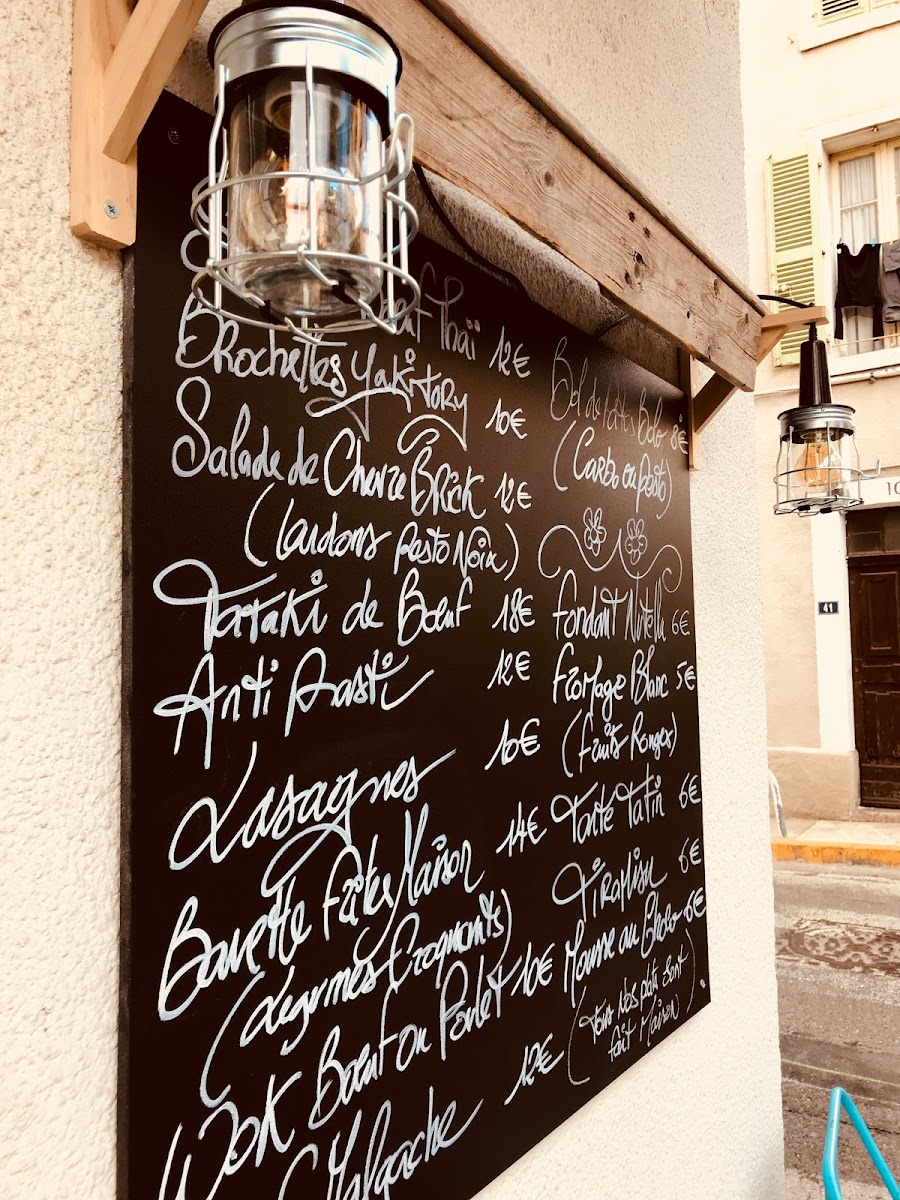 Bœuf Thaï 12€
Brochettes Yakitory 10€
Salade de Chèvre Brick 12€
(Lardons Pesto Noix)
Tataki de Bœuf 18€
Anti Pasti 12€
Lasagnes 10€
Bavette Pâtes Maison 14€
(Légumes Croquants)
Wok Bœuf ou Poulet 10€
Malgache 12€
Bol de Pâtes Bolo 8€
(Carbo ou Pesto)
Fondant Nutella 6€
Fromage Blanc 5€
(Fruits Rouges)
Tarte Tatin 6€
Tiramisu 6€
Mousse au Choco 6€
(Tous nos plats sont
fait Maison)
41
10